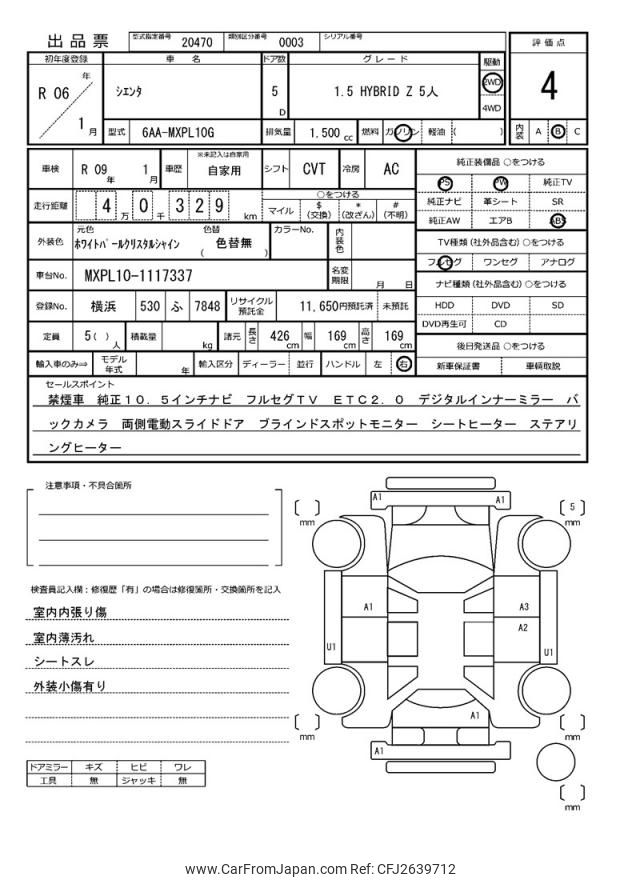 出品票
型式指定番号 20470
類別区分番号 0003
シリアル番号
評価点
4
内装 A B C
初年度登録
R 06 年
1 月
車名
シエンタ
ドア数
5 D
グレード
1.5 HYBRID Z 5人
駆動
2WD
4WD
型式 6AA-MXPL10G
排気量 1.500 cc
燃料 ガソリン 軽油 ( )
車検 R 09 年 1 月
車歴 ※未記入は自家用 自家用
シフト CVT
冷房 AC
走行距離 4 万 0 千 3 2 9 km
○をつける
マイル $(交換) *(改ざん) #(不明)
外装色
元色
ホワイトパールクリスタルシャイン
色替
( 色替無 )
カラーNo.
内装色
車台No. MXPL10-1117337
名変期限 月 日
登録No. 横浜 530 ふ 7848
リサイクル預託金 11,650円預託済 未預託
定員 5( ) 人
積載量 kg
諸元 長さ 426 cm 幅 169 cm 高さ 169 cm
輸入車のみ⇒ モデル年式 年
輸入区分 ディーラー 並行
ハンドル 左 右
純正装備品 ○をつける
PS PW 純正TV
純正ナビ 革シート SR
純正AW エアB ABS
TV種類(社外品含む)○をつける
フルセグ ワンセグ アナログ
ナビ種類(社外品含む)○をつける
HDD DVD SD
DVD再生可 CD
後日発送品 ○をつける
新車保証書 車輌取説
セールスポイント
禁煙車 純正10.5インチナビ フルセグTV ETC2.0 デジタルインナーミラー バ
ックカメラ 両側電動スライドドア ブラインドスポットモニター シートヒーター ステアリ
ングヒーター
注意事項・不具合箇所
検査員記入欄:修復歴「有」の場合は修復箇所・交換箇所を記入
室内内張り傷
室内薄汚れ
シートスレ
外装小傷有り
ドアミラー キズ ヒビ ワレ
工具 無 ジャッキ 無
A1 A1
[ ] mm
[ 5 ] mm
A1 A3
A2
U1 U1
A1
A1
[ ] mm
[ ] mm
[ ] mm
www.CarFromJapan.com Ref: CFJ2639712